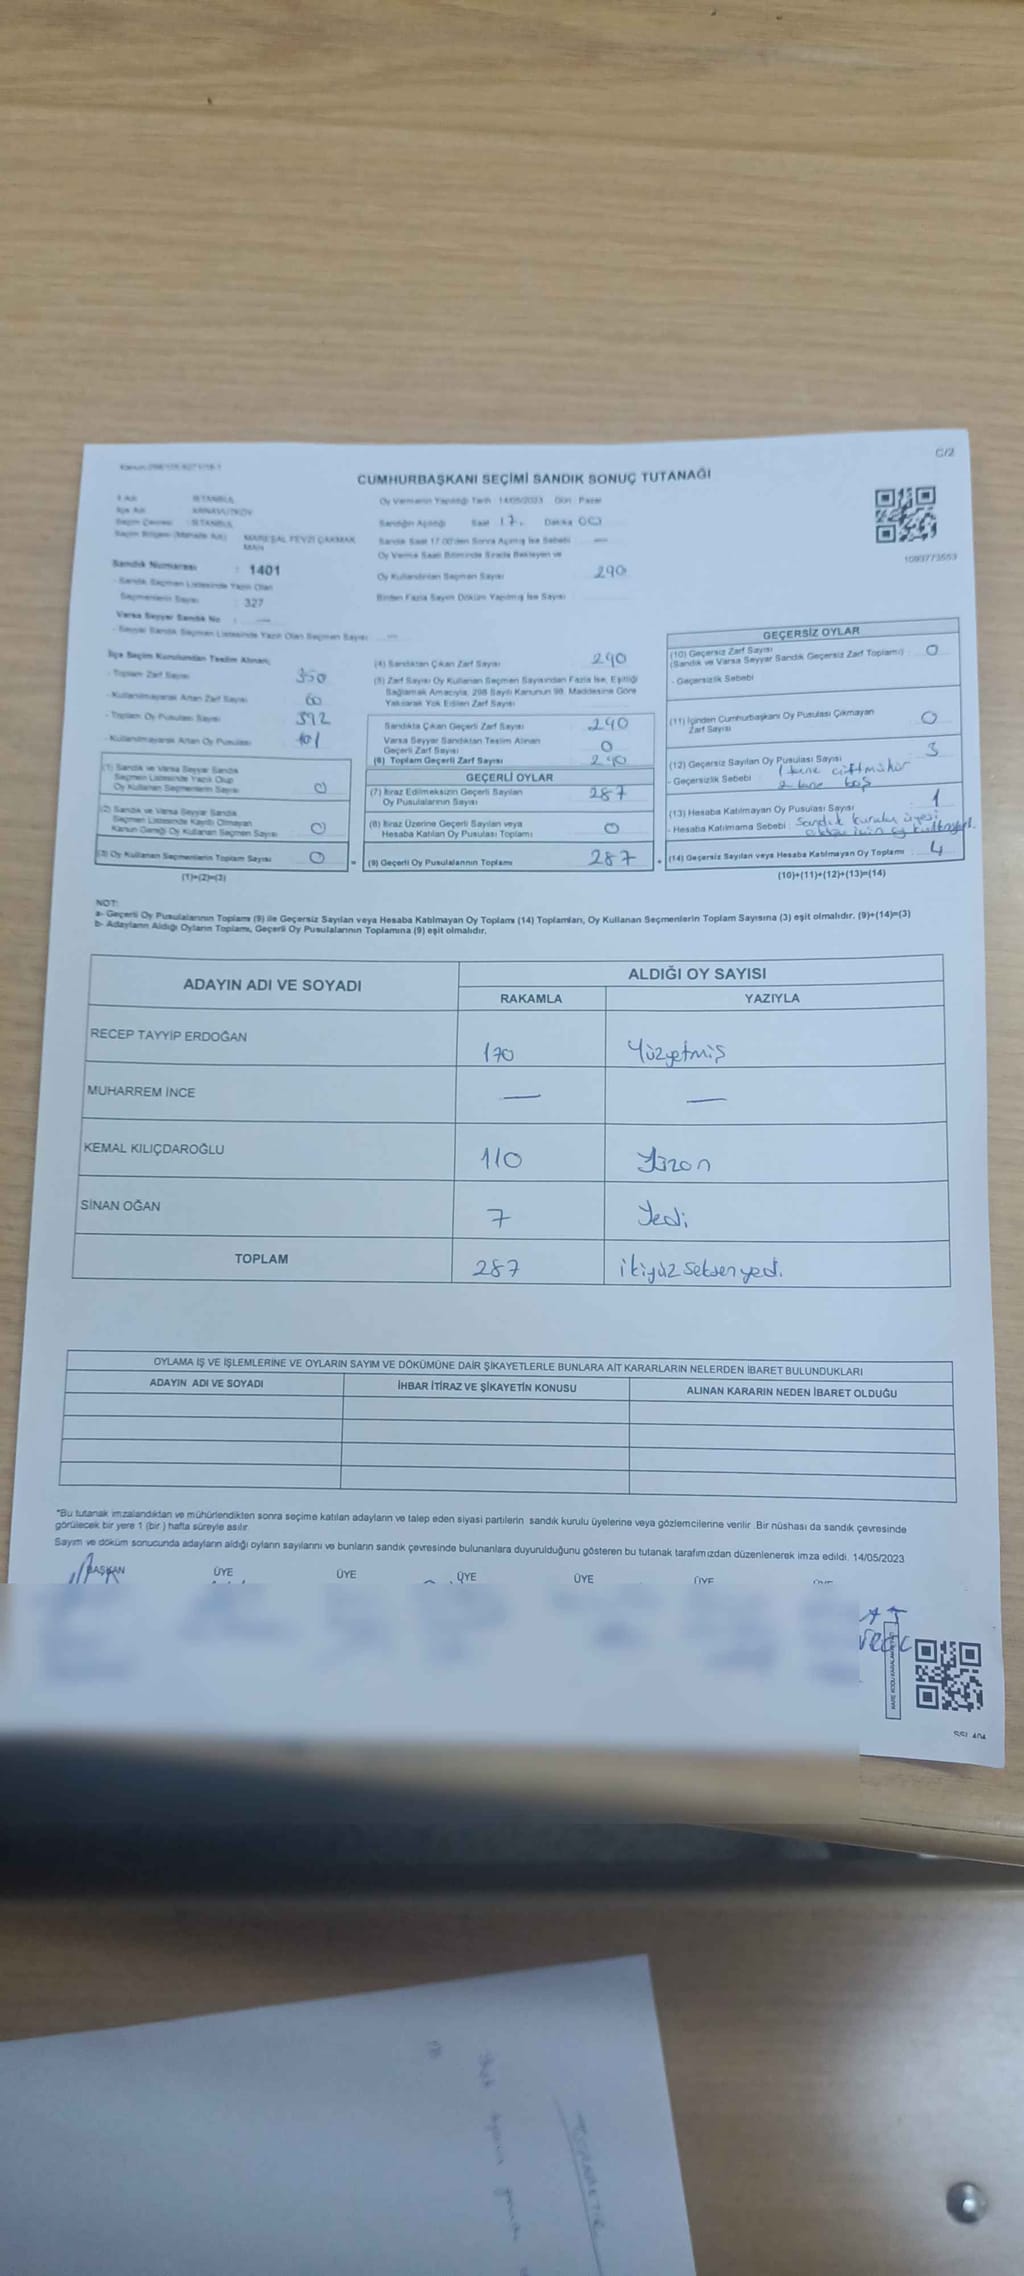 C/2
CUMHURBAŞKANI SEÇİMİ SANDIK SONUÇ TUTANAĞI
İl Adı : İSTANBUL
İlçe Adı : ARNAVUTKÖY
Seçim Çevresi : İSTANBUL
Seçim Bölgesi (Mahalle Adı) : MAREŞAL FEVZİ ÇAKMAK MAH
Sandık Numarası : 1401
- Sandık Seçmen Listesinde Yazılı Olan
Seçmenlerin Sayısı : 327
Varsa Seyyar Sandık No : —
- Seyyar Sandık Seçmen Listesinde Yazılı Olan Seçmen Sayısı : —
Oy Vermenin Yapıldığı Tarih : 14/05/2023 Gün : Pazar
Sandığın Açıldığı Saat 17. Dakika 00
Sandık Saat 17.00'den Sonra Açılmış İse Sebebi : —
Oy Verme Saati Bitiminde Sırada Bekleyen ve
Oy Kullandırılan Seçmen Sayısı 290
Birden Fazla Sayım Döküm Yapılmış İse Sayısı
1093773553
İlçe Seçim Kurulundan Teslim Alınan;
- Toplam Zarf Sayısı 350
- Kullanılmayarak Artan Zarf Sayısı 60
- Toplam Oy Pusulası Sayısı 392
- Kullanılmayarak Artan Oy Pusulası 101
(1) Sandık ve Varsa Seyyar Sandık
Seçmen Listesinde Yazılı Olup
Oy Kullanan Seçmenlerin Sayısı 0
(2) Sandık ve Varsa Seyyar Sandık
Seçmen Listesinde Kayıtlı Olmayan
Kanun Gereği Oy Kullanan Seçmen Sayısı 0
(3) Oy Kullanan Seçmenlerin Toplam Sayısı 0
(1)+(2)=(3)
(4) Sandıktan Çıkan Zarf Sayısı 290
(5) Zarf Sayısı Oy Kullanan Seçmen Sayısından Fazla İse, Eşitliği
Sağlamak Amacıyla, 298 Sayılı Kanunun 98. Maddesine Göre
Yakılarak Yok Edilen Zarf Sayısı
Sandıkta Çıkan Geçerli Zarf Sayısı 290
Varsa Seyyar Sandıktan Teslim Alınan
Geçerli Zarf Sayısı 0
(6) Toplam Geçerli Zarf Sayısı 290
GEÇERLİ OYLAR
(7) İtiraz Edilmeksizin Geçerli Sayılan
Oy Pusulalarının Sayısı 287
(8) İtiraz Üzerine Geçerli Sayılan veya
Hesaba Katılan Oy Pusulası Toplamı 0
= (9) Geçerli Oy Pusulalarının Toplamı 287 +
GEÇERSİZ OYLAR
(10) Geçersiz Zarf Sayısı
(Sandık ve Varsa Seyyar Sandık Geçersiz Zarf Toplamı) : 0
- Geçersizlik Sebebi
(11) İçinden Cumhurbaşkanı Oy Pusulası Çıkmayan
Zarf Sayısı 0
(12) Geçersiz Sayılan Oy Pusulası Sayısı 3
- Geçersizlik Sebebi 1 tane çift mühür
2 tane boş
(13) Hesaba Katılmayan Oy Pusulası Sayısı 1
- Hesaba Katılmama Sebebi : Sandık kurulu üyesi
için oy
(14) Geçersiz Sayılan veya Hesaba Katılmayan Oy Toplamı : 4
(10)+(11)+(12)+(13)=(14)
NOT:
a- Geçerli Oy Pusulalarının Toplamı (9) ile Geçersiz Sayılan veya Hesaba Katılmayan Oy Toplamı (14) Toplamları, Oy Kullanan Seçmenlerin Toplam Sayısına (3) eşit olmalıdır. (9)+(14)=(3)
b- Adayların Aldığı Oyların Toplamı, Geçerli Oy Pusulalarının Toplamına (9) eşit olmalıdır.
ADAYIN ADI VE SOYADI
ALDIĞI OY SAYISI
RAKAMLA YAZIYLA
RECEP TAYYİP ERDOĞAN 170 Yüzyetmiş
MUHARREM İNCE — —
KEMAL KILIÇDAROĞLU 110 Yüzon
SİNAN OĞAN 7 Yedi
TOPLAM 287 ikiyüz seksen yedi
OYLAMA İŞ VE İŞLEMLERİNE VE OYLARIN SAYIM VE DÖKÜMÜNE DAİR ŞİKAYETLERLE BUNLARA AİT KARARLARIN NELERDEN İBARET BULUNDUKLARI
ADAYIN ADI VE SOYADI İHBAR İTİRAZ VE ŞİKAYETİN KONUSU ALINAN KARARIN NEDEN İBARET OLDUĞU
*Bu tutanak imzalandıktan ve mühürlendikten sonra seçime katılan adayların ve talep eden siyasi partilerin sandık kurulu üyelerine veya gözlemcilerine verilir. Bir nüshası da sandık çevresinde
görülecek bir yere 1 (bir) hafta süreyle asılır.
Sayım ve döküm sonucunda adayların aldığı oyların sayılarını ve bunların sandık çevresinde bulunanlara duyurulduğunu gösteren bu tutanak tarafımızdan düzenlenerek imza edildi. 14/05/2023
BAŞKAN ÜYE ÜYE ÜYE ÜYE ÜYE ÜYE